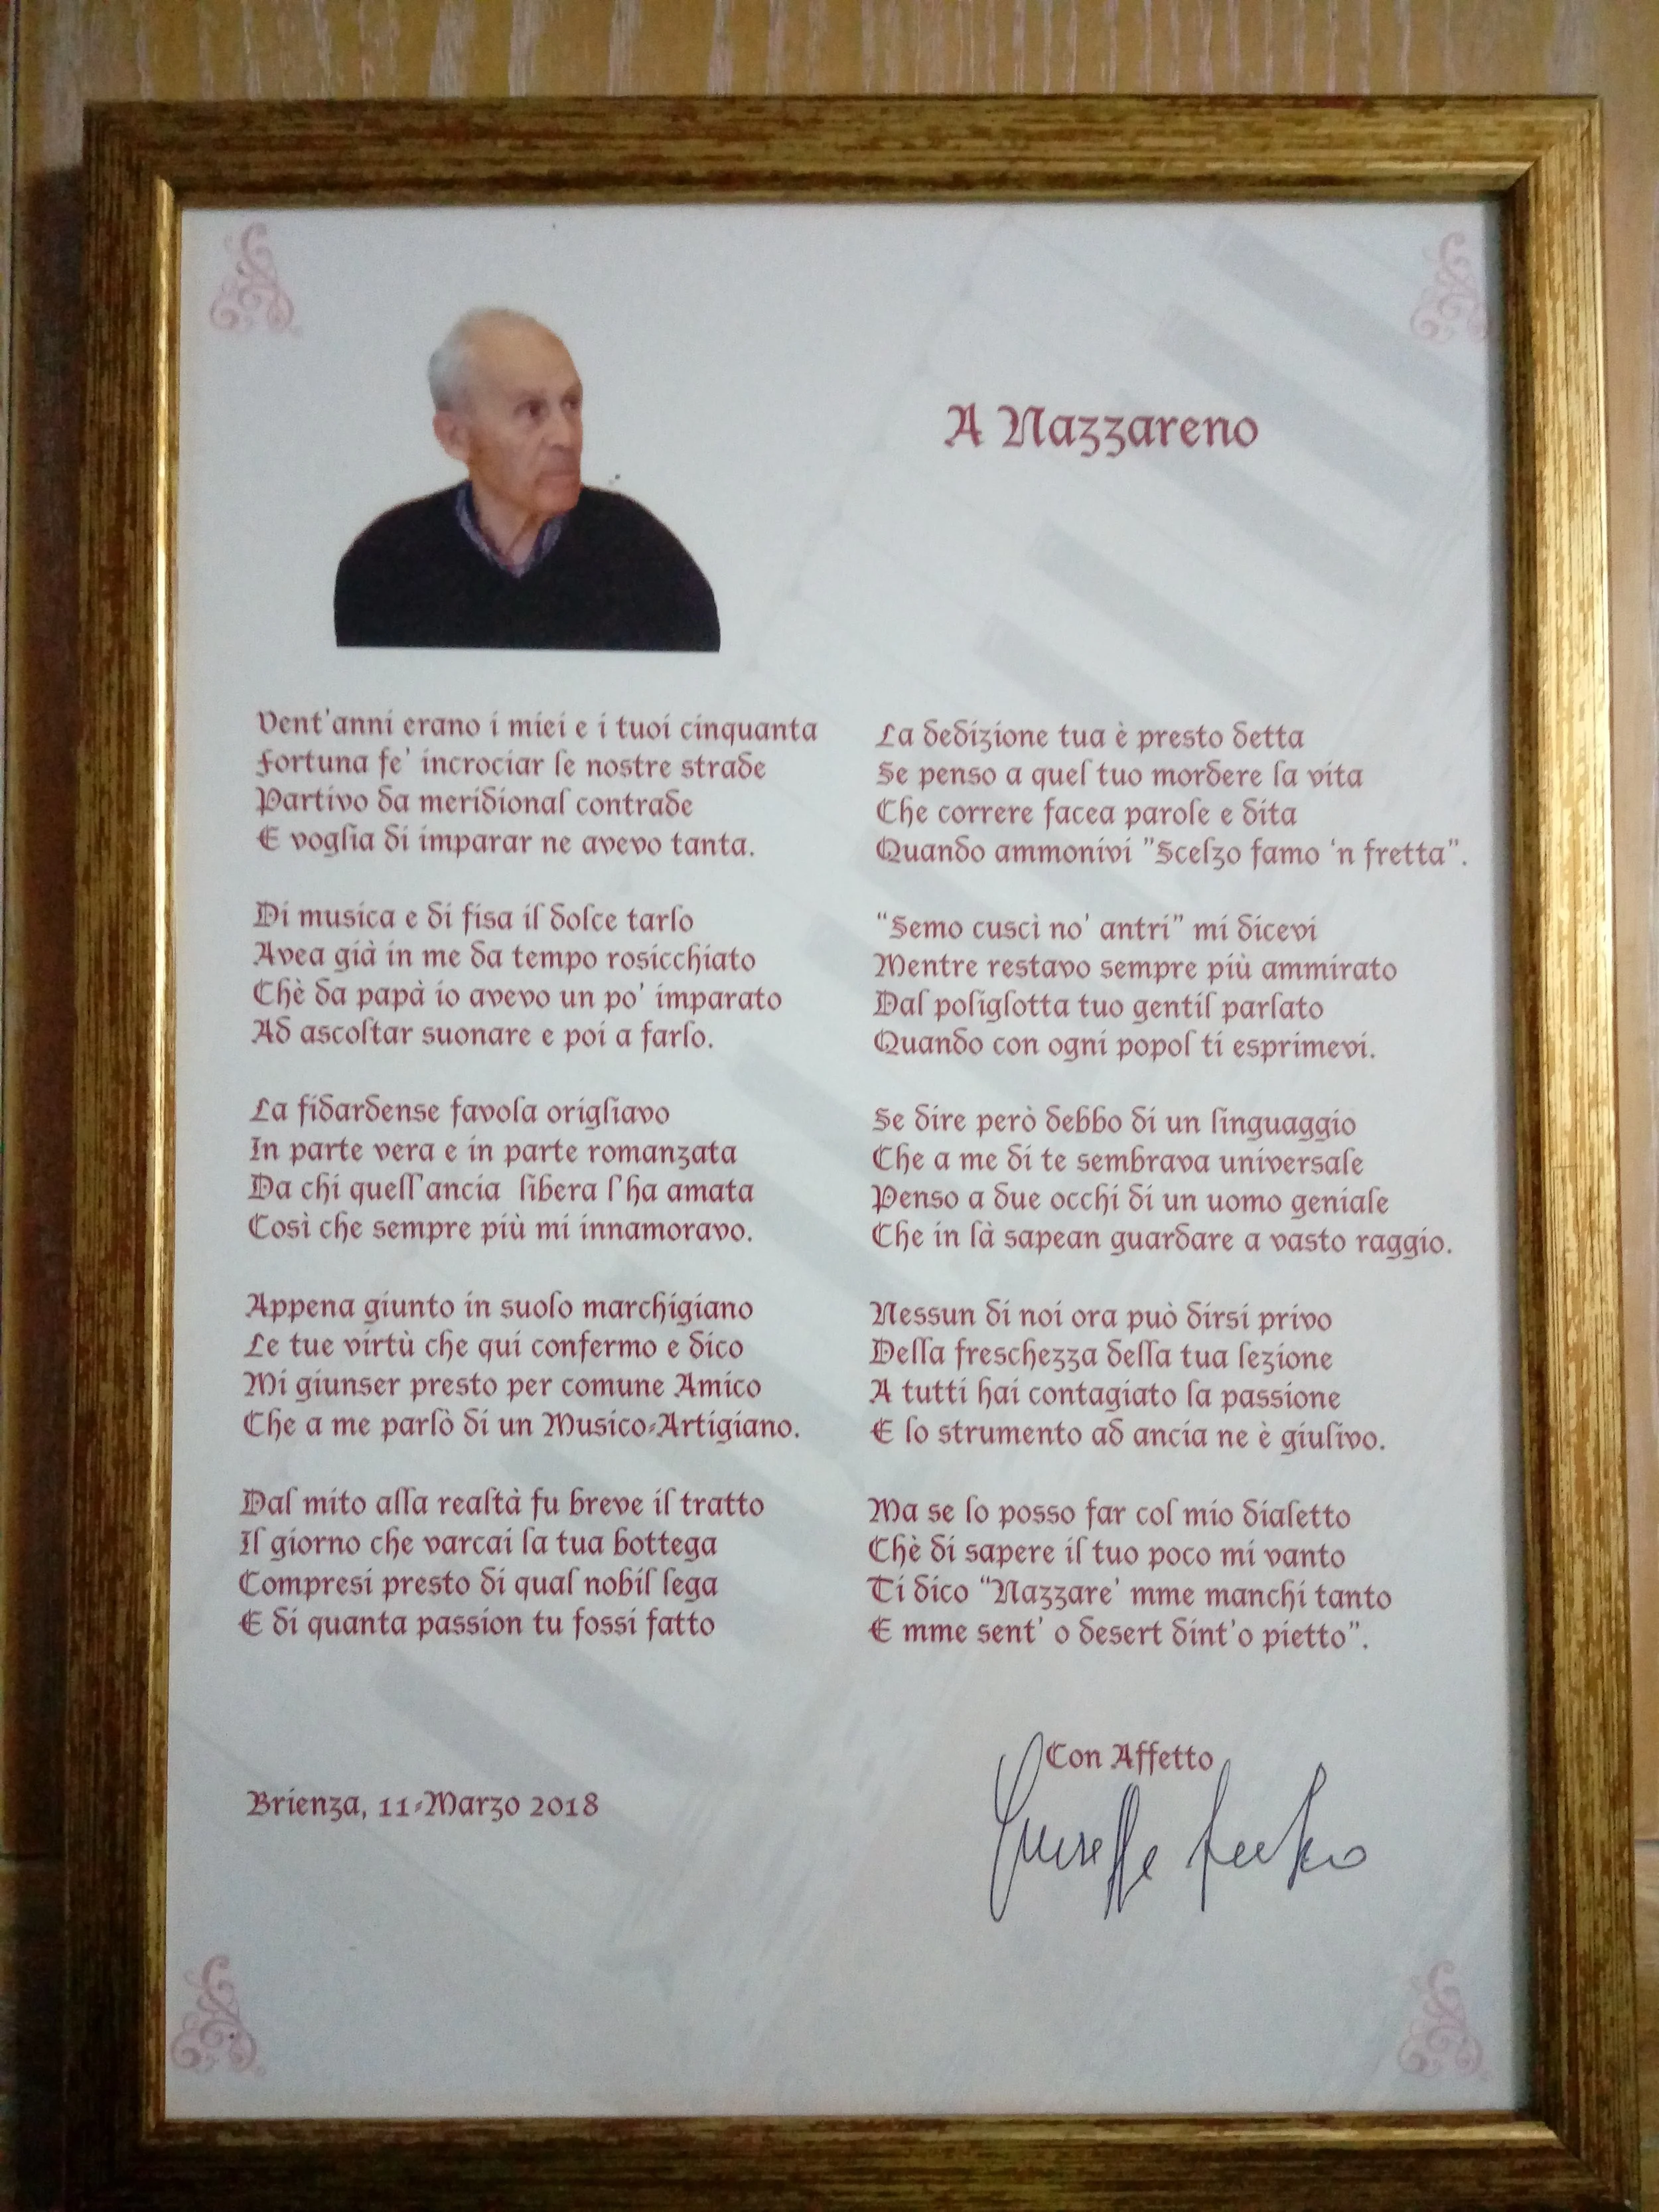 A Nazzareno
Vent'anni erano i miei e i tuoi cinquanta
Fortuna fe' incrociar le nostre strade
Partivo da meridional contrade
E voglia di imparar ne avevo tanta.
Di musica e di fisa il dolce tarlo
Avea già in me da tempo rosicchiato
Chè da papà io avevo un po' imparato
Ad ascoltar suonare e poi a farlo.
La fidardense favola origliavo
In parte vera e in parte romanzata
Da chi quell'ancia libera l'ha amata
Così che sempre più mi innamoravo.
Appena giunto in suolo marchigiano
Le tue virtù che qui confermo e dico
Mi giunser presto per comune Amico
Che a me parlò di un Musico-Artigiano.
Dal mito alla realtà fu breve il tratto
Il giorno che varcai la tua bottega
Compresi presto di qual nobil lega
E di quanta passion tu fossi fatto
La dedizione tua è presto detta
Se penso a quel tuo mordere la vita
Che correre facea parole e dita
Quando ammonivi "Scelzo famo 'n fretta".
"Semo cuscì no' antri" mi dicevi
Mentre restavo sempre più ammirato
Dal poliglotta tuo gentil parlato
Quando con ogni popol ti esprimevi.
Se dire però debbo di un linguaggio
Che a me di te sembrava universale
Penso a due occhi di un uomo geniale
Che in là sapean guardare a vasto raggio.
Nessun di noi ora può dirsi privo
Della freschezza della tua lezione
A tutti hai contagiato la passione
E lo strumento ad ancia ne è giulivo.
Ma se lo posso far col mio dialetto
Chè di sapere il tuo poco mi vanto
Ti dico "Nazzare' mme manchi tanto
E mme sent' o desert dint'o pietto".
Con Affetto
Brienza, 11-Marzo 2018
Giuseppe